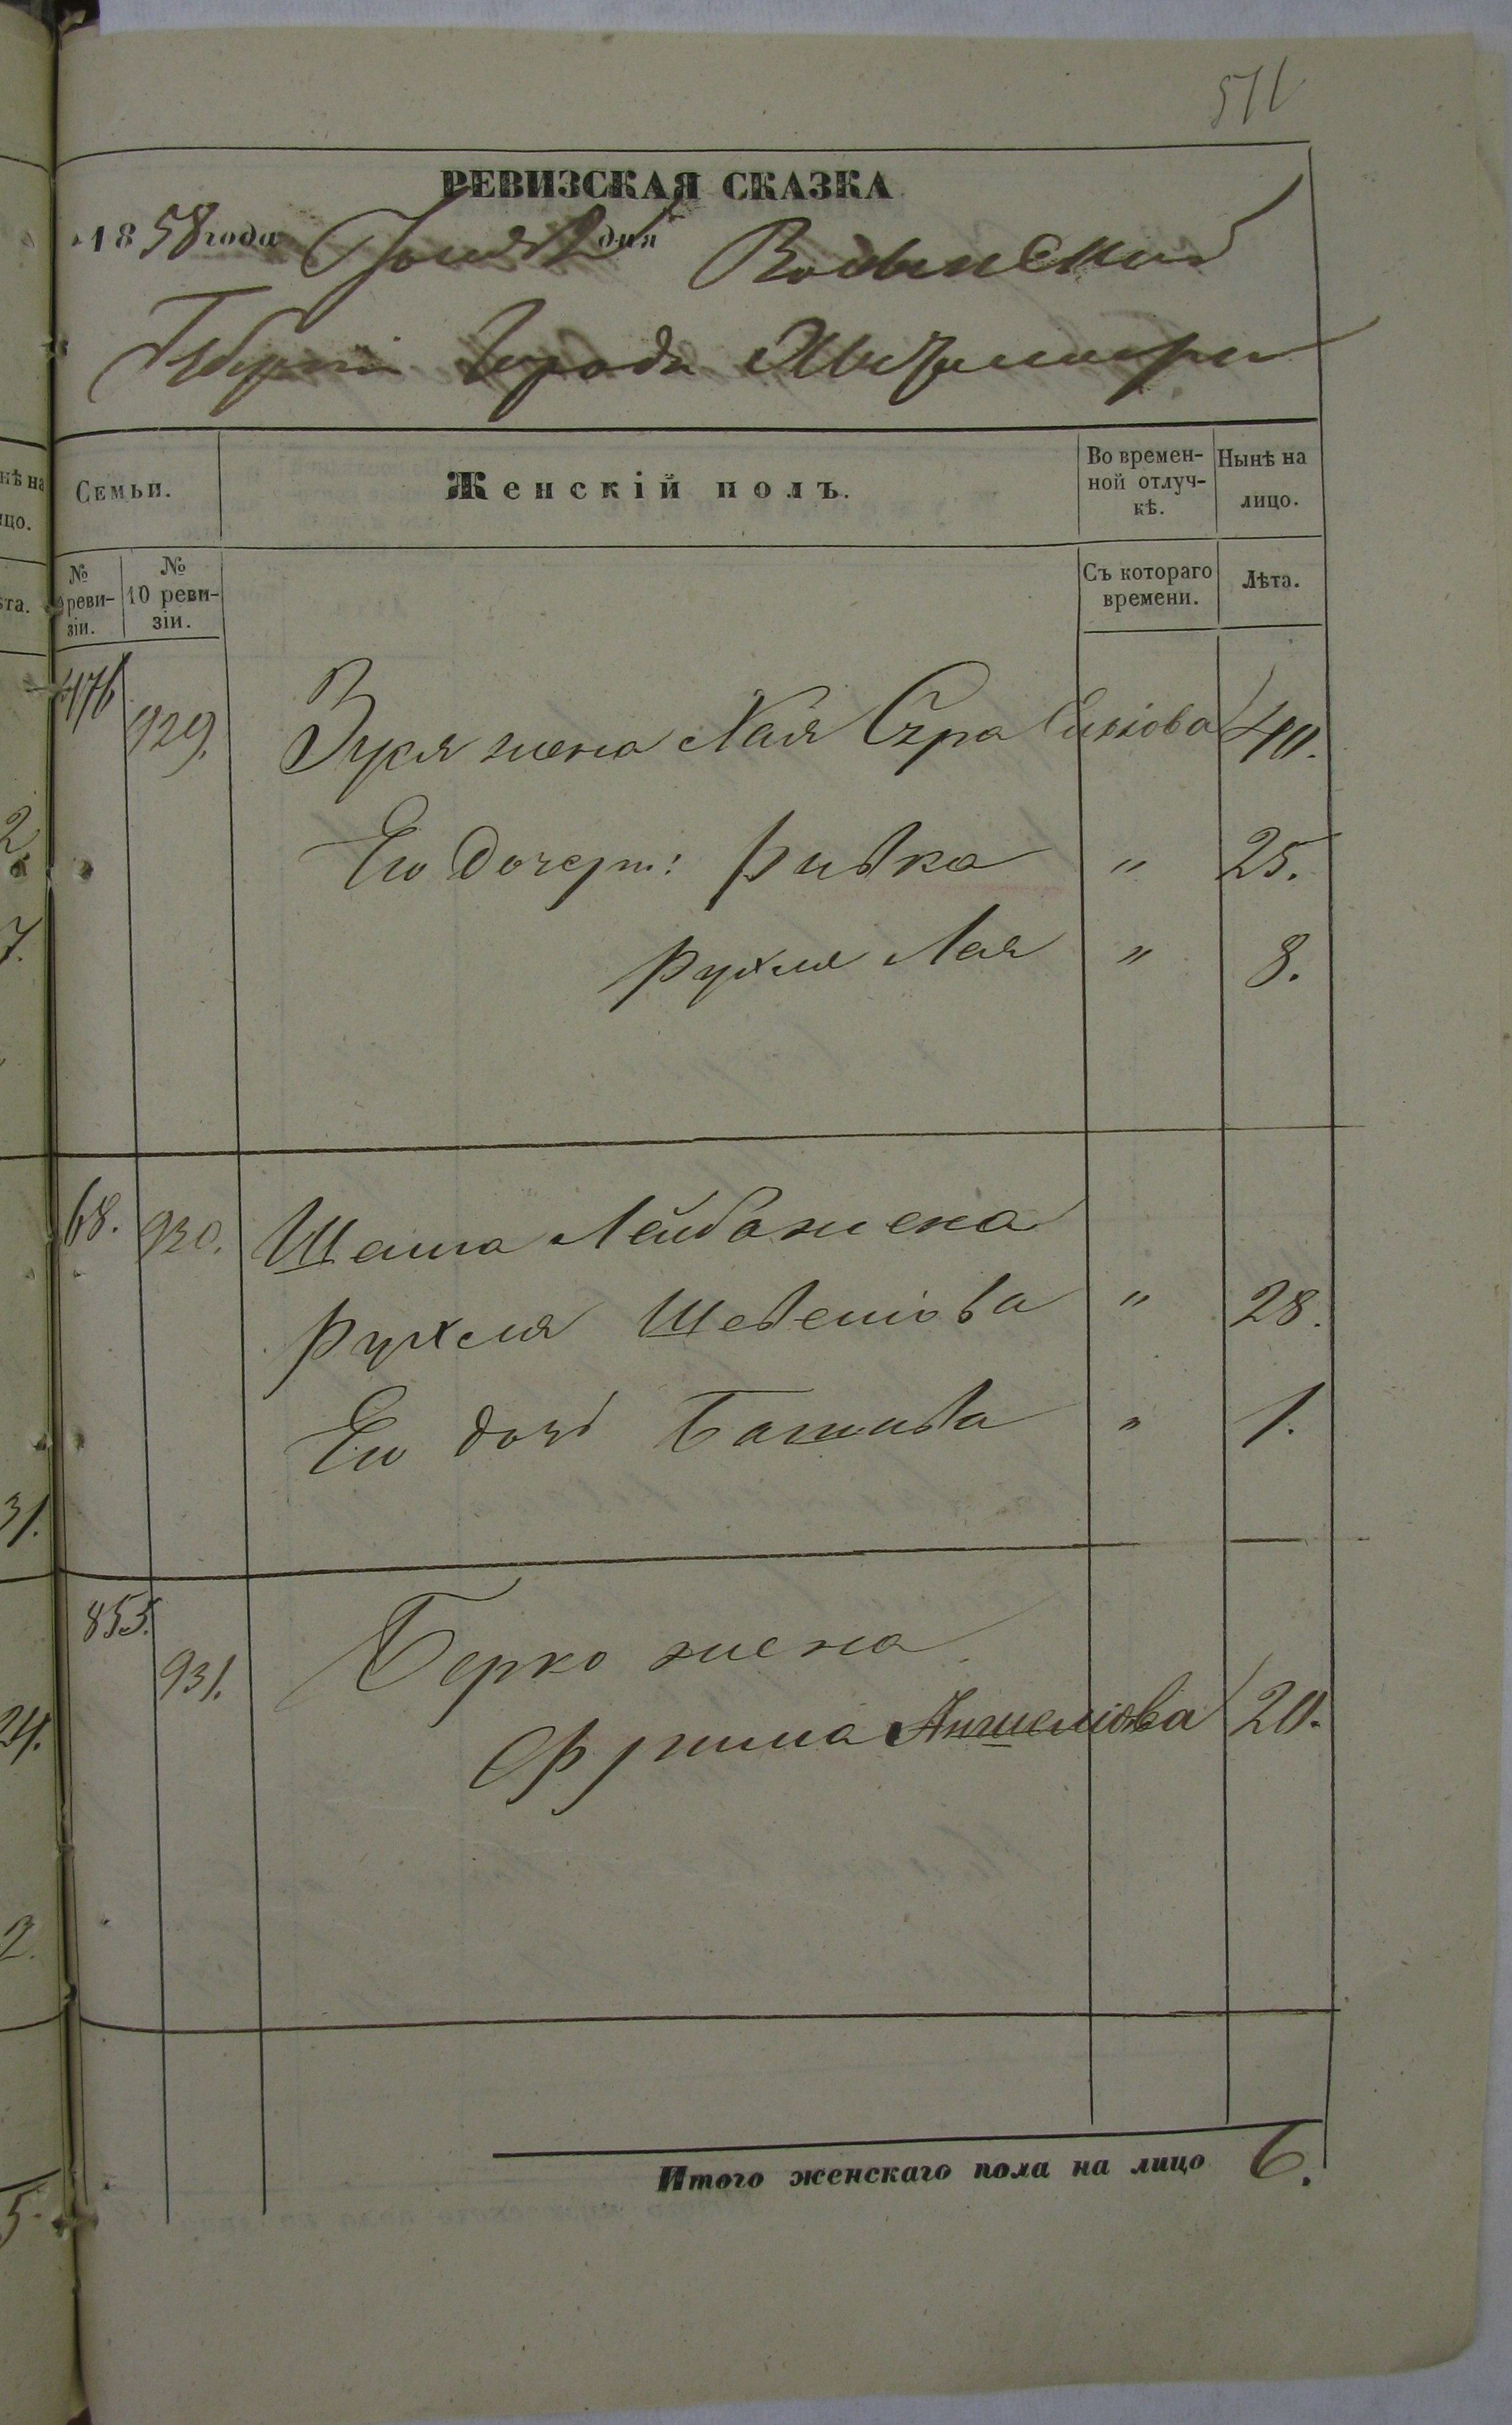 511
РЕВИЗСКАЯ СКАЗКА
1858 года Іюня 2 дня Волынской
Губерніи Города Житомира
Семьи.
Женскій полъ.
Во времен-
ной отлуч-
кѣ.
Нынѣ на
лицо.
№
реви-
зіи.
№
10 реви-
зіи.
Съ котораго
времени.
Лѣта.
476
929.
Зуся жена Хая Сура 40.
Его дочери: Ривка " 25.
Рухля Лая " 8.
68. 930. Шаша Лейба жена
Рухля " 28.
Его дочь Батшива " 1.
853.
931.
Берко жена
Фрима Аншелiова 20.
Итого женскаго пола на лицо 6.
2.
7.
31.
24.
2.
5.